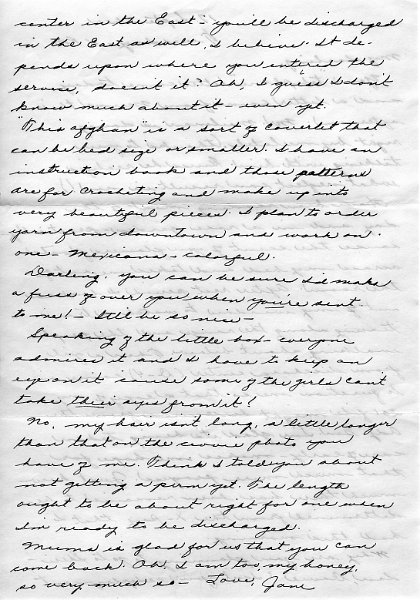 center in the East - you'll be discharged
in the East as well, I believe. It de-
pends upon where you entered the
service, doesn't it? Oh, I guess I don't
know much about it - even yet.
"This afghan" is a sort of coverlet that
can be bed size or smaller. I have an
instruction book and those patterns
are for crocheting and make up into
very beautiful pieces. I plan to order
yarn from downtown and work on
one - Mexicana - colorful.
Darling, you can be sure I'd make
a fuss of over you when you're sent
to me! - It'll be so nice -
Speaking of the little box - everyone
admires it and I have to keep an
eye on it cause some of the girls can't
take their eyes from it!
No, my hair isn't long, a little longer
than that on the civvie photo you
have of me. Think I told you about
not getting a perm yet. The length
ought to be about right for one when
I'm ready to be discharged.
Mums is glad for us that you can
come back. Oh, I am too, my honey,
so very much so - Love, Jane